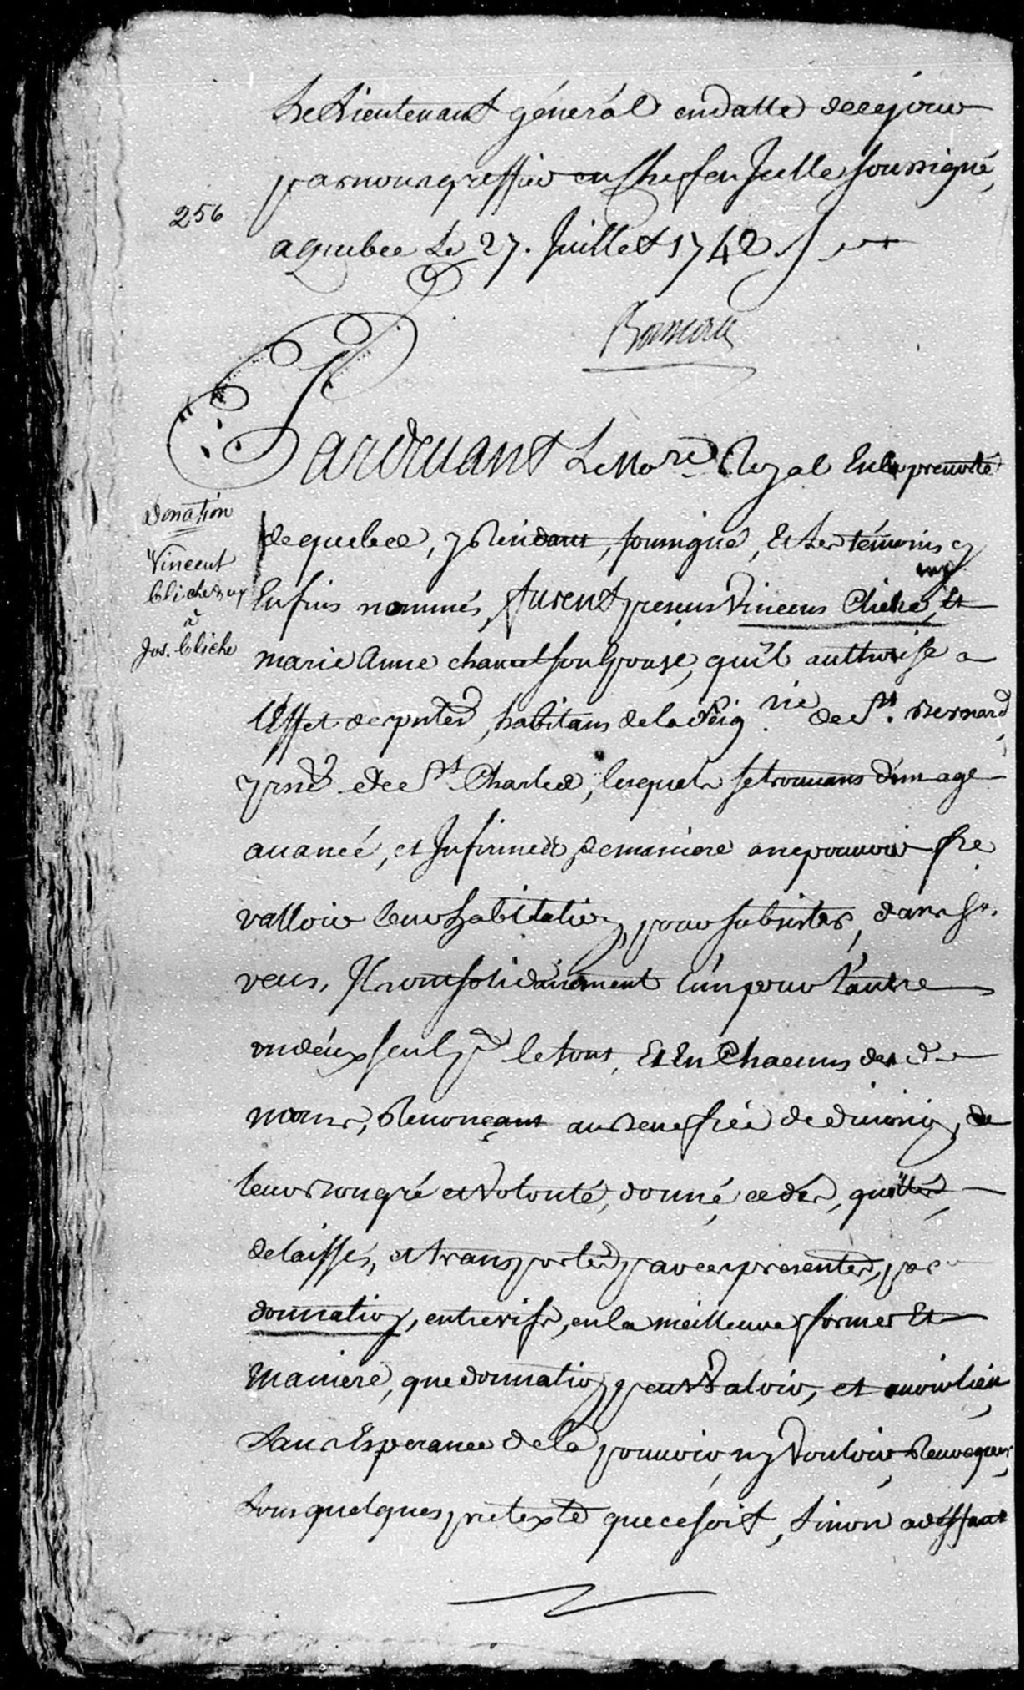 le Lieutenant général en datte de ce jour
par nous greffier en Chef en Icelle soussigné,
a quebec Le 27. Juillet 1742
256
Pardevant Le No.re Royal En la prevosté
Donation
Vincent
Cliche &ux
à
Jos. Cliche
de quebec, y Residant, soussigné, Et les témoins cy
Enfins nommés, furent presens Vincens Cliche, Et
marie Anne chancel son Epouse, quil authorise a
L'Effet des p.ntes, habitans de la Seig.rie de S.t Bernard,
p.sse de S.t Charles, lesquels se trouvans d'un age
avancé, et Infirmes de maniere a ne pouvoir fre
valloir leurs habitation, pour subsister, dans
veus, Ils ont solidairement l'un pour L'autre
un deux seul p.r le tout, Et En Chacuns des d.
noms, Renonçant au Benefice de division, de
leurs bon gré et volonté, donné, cedés, quittés,
delaissés, et transportés par ces presentes, par
donnation, entrevifs, en la meilleure forme Et
Maniere, que donnation peut Valoir, et avoir lieu
Sans Esperance de la pouvoir, ny Vouloir Revoquer,
Sous quelques pretexte que ce soit, Sinon